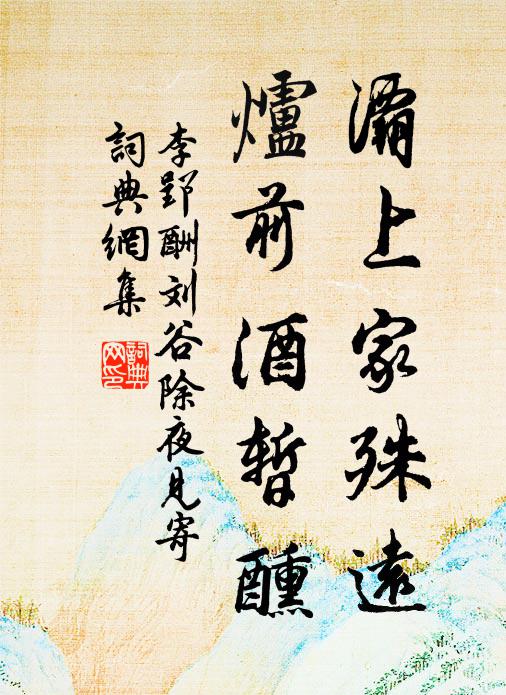 灞上家殊遠
爐前酒暫醺
李郢酬刘谷除夜見寄
詞典網集
詞典网印